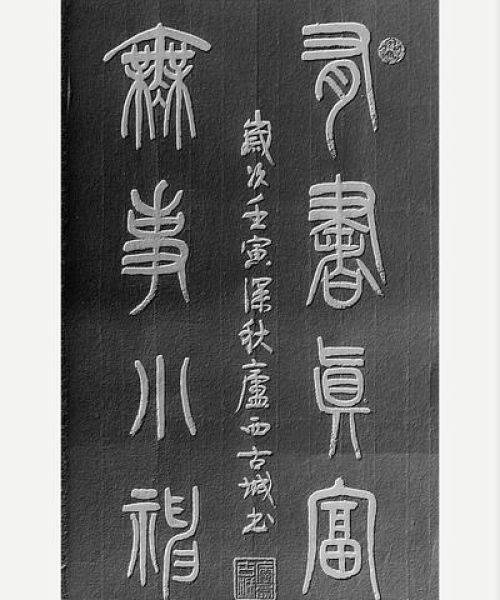 有書眞富
歲次壬寅深秋廬西古城书
無事小神